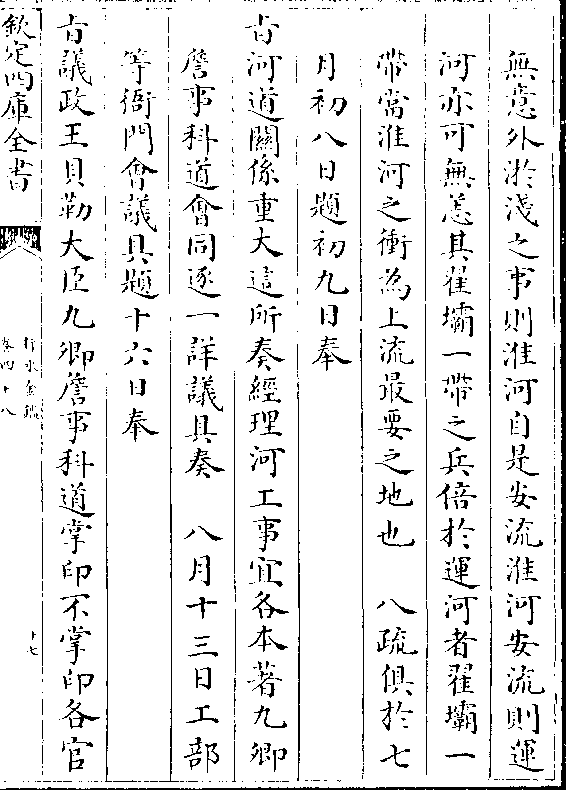 無意外淤淺之事則淮河自是安流淮河安流則運
河亦可無恙其翟壩一帶之兵倍於運河者翟壩一
帶當淮河之衝為上流最要之地也　八疏俱於七
月初八日題初九日奉
旨河道關係重大這所奏經理河工事宜各本著九卿
詹事科道會同逐一詳議具奏　八月十三日工部
等衙門會議具題十六日奉
旨議政王貝勒大臣九卿詹事科道掌印不掌印各官
欽定四庫全書
行水金鑑
卷四十八
十七